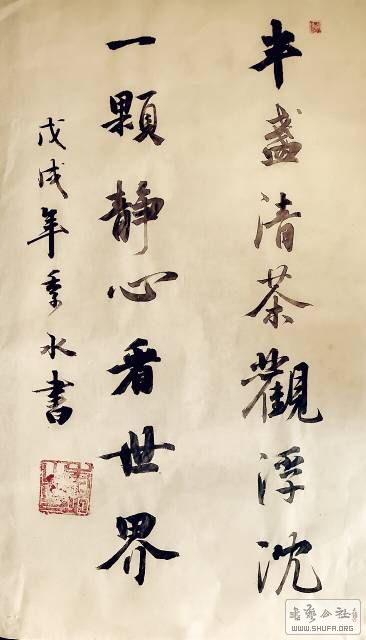 半盏清茶觀浮沈
一顆静心看世界
戊戌年季水書
書藝公社
WWW.SHUFA.ORG